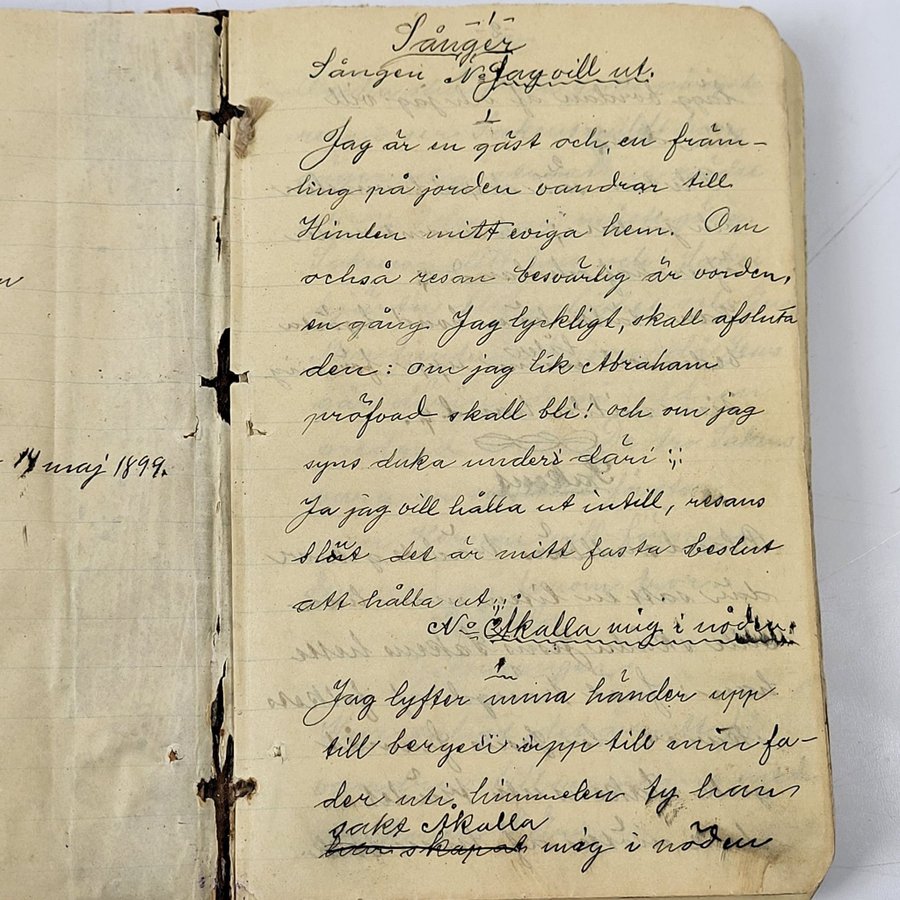 14 maj 1899.
Sånger
Sången No Jag vill ut.
1
Jag är en gäst och en främ-
ling på jorden vandrar till
Himlen mitt eviga hem. Om
också resan besvärlig är vorden,
en gång. Jag lyckligt, skall afsluta
den: om jag lik Abraham
pröfvad skall bli! och om jag
syns duka under däri :;:
Ja jag vill hålla ut intill, resans
slut det är mitt fasta beslut
att hålla ut.
No 2 Åkalla mig i nöden.
1
Jag lyfter mina händer upp
till bergen upp till min fa-
der uti himmelen ty han
sakt Åkalla
han skapat mig i nöden